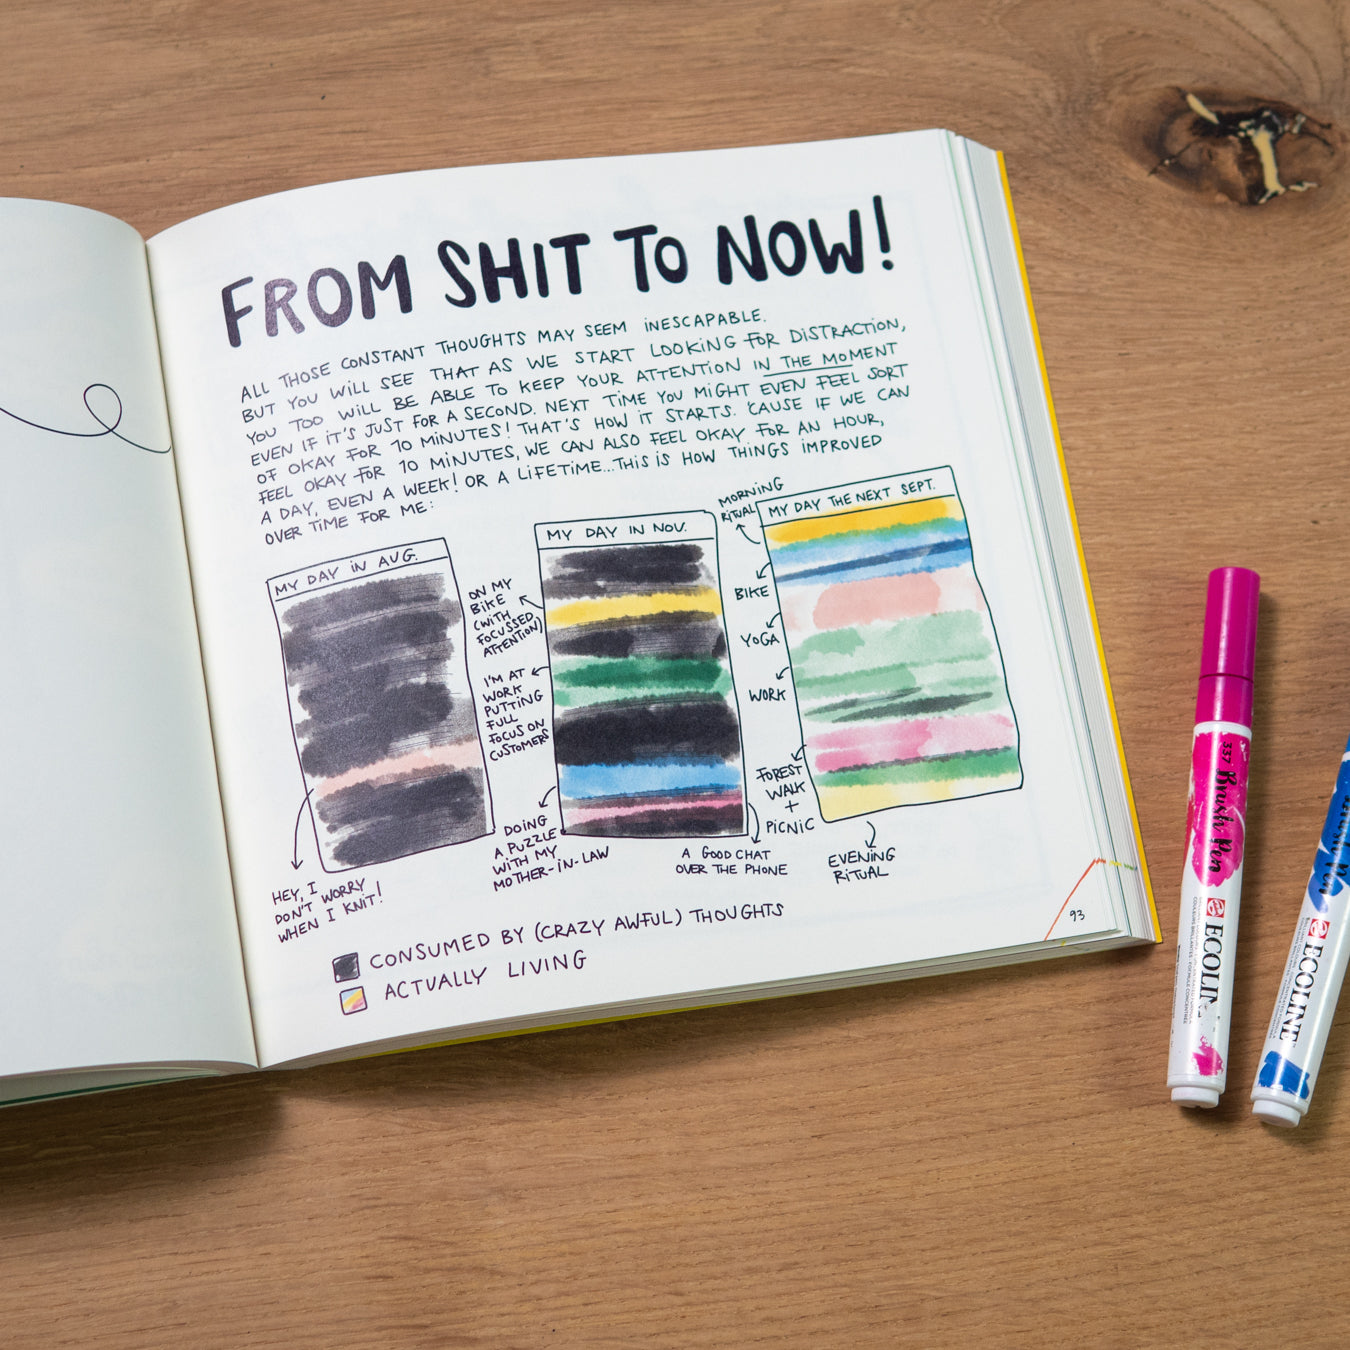 FROM SHIT TO NOW!
ALL THOSE CONSTANT THOUGHTS MAY SEEM INESCAPABLE.
BUT YOU WILL SEE THAT AS WE START LOOKING FOR DISTRACTION,
YOU TOO WILL BE ABLE TO KEEP YOUR ATTENTION IN THE MOMENT
EVEN IF IT'S JUST FOR A SECOND. NEXT TIME YOU MIGHT EVEN FEEL SORT
OF OKAY FOR 10 MINUTES! THAT'S HOW IT STARTS. 'CAUSE IF WE CAN
FEEL OKAY FOR 10 MINUTES, WE CAN ALSO FEEL OKAY FOR AN HOUR,
A DAY, EVEN A WEEK! OR A LIFETIME...THIS IS HOW THINGS IMPROVED
OVER TIME FOR ME:
MY DAY IN AUG.
HEY, I
DON'T WORRY
WHEN I KNIT!
MY DAY IN NOV.
ON MY
BIKE
(WITH
FOCUSSED
ATTENTION)
I'M AT
WORK
PUTTING
FULL
FOCUS ON
CUSTOMERS
DOING
A PUZZLE
WITH MY
MOTHER-IN-LAW
A GOOD CHAT
OVER THE PHONE
MY DAY THE NEXT SEPT.
MORNING
RITUAL
BIKE
YOGA
WORK
FOREST
WALK
+
PICNIC
EVENING
RITUAL
CONSUMED BY (CRAZY AWFUL) THOUGHTS
ACTUALLY LIVING
93
337 Brush Pen
ECOLINE
Brush Pen
ECOLINE